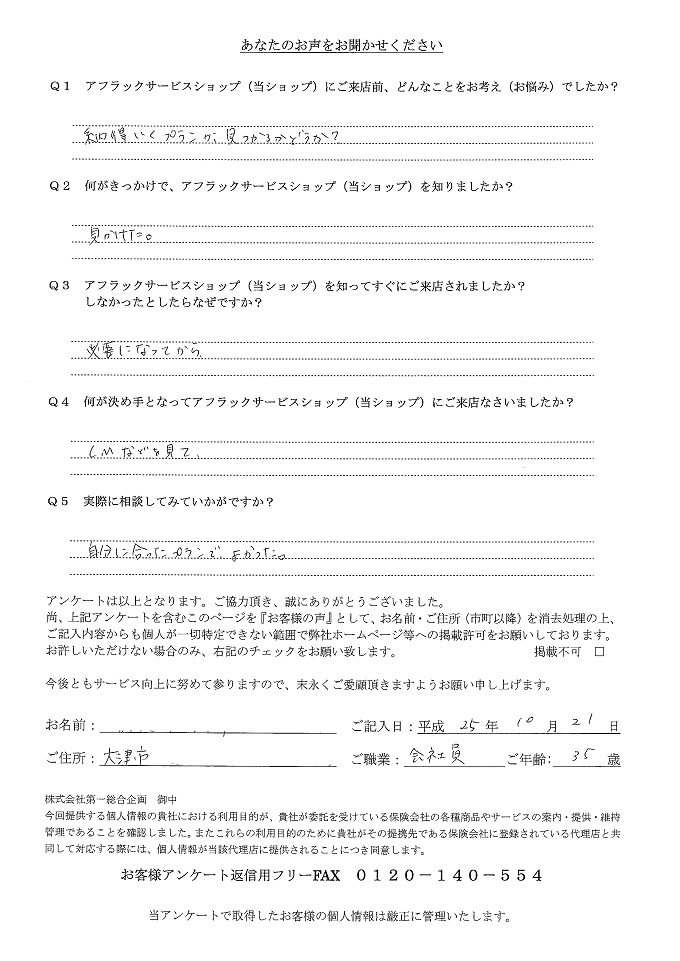 あなたのお声をお聞かせください
Q1 アフラックサービスショップ（当ショップ）にご来店前、どんなことをお考え（お悩み）でしたか？
納得いくプランが、見つかるかどうか？
Q2 何がきっかけで、アフラックサービスショップ（当ショップ）を知りましたか？
見かけた。
Q3 アフラックサービスショップ（当ショップ）を知ってすぐにご来店されましたか？
しなかったとしたらなぜですか？
必要になってから、
Q4 何が決め手となってアフラックサービスショップ（当ショップ）にご来店なさいましたか？
CMなどを見て、
Q5 実際に相談してみていかがですか？
自分に合ったプランで、よかった。
アンケートは以上となります。ご協力頂き、誠にありがとうございました。
尚、上記アンケートを含むこのページを『お客様の声』として、お名前・ご住所（市町以降）を消去処理の上、
ご記入内容からも個人が一切特定できない範囲で弊社ホームページ等への掲載許可をお願いしております。
お許しいただけない場合のみ、右記のチェックをお願い致します。 掲載不可 □
今後ともサービス向上に努めて参りますので、末永くご愛顧頂きますようお願い申し上げます。
お名前： ご記入日：平成 25 年 10 月 21 日
ご住所：大津市 ご職業：会社員 ご年齢：35 歳
株式会社第一総合企画 御中
今回提供する個人情報の貴社における利用目的が、貴社が委託を受けている保険会社の各種商品やサービスの案内・提供・維持
管理であることを確認しました。またこれらの利用目的のために貴社がその提携先である保険会社に登録されている代理店と共
同して対応する際には、個人情報が当該代理店に提供されることにつき同意します。
お客様アンケート返信用フリーFAX 0120－140－554
当アンケートで取得したお客様の個人情報は厳正に管理いたします。